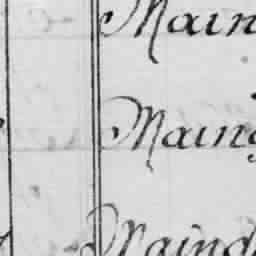 Main
Maing
Maind